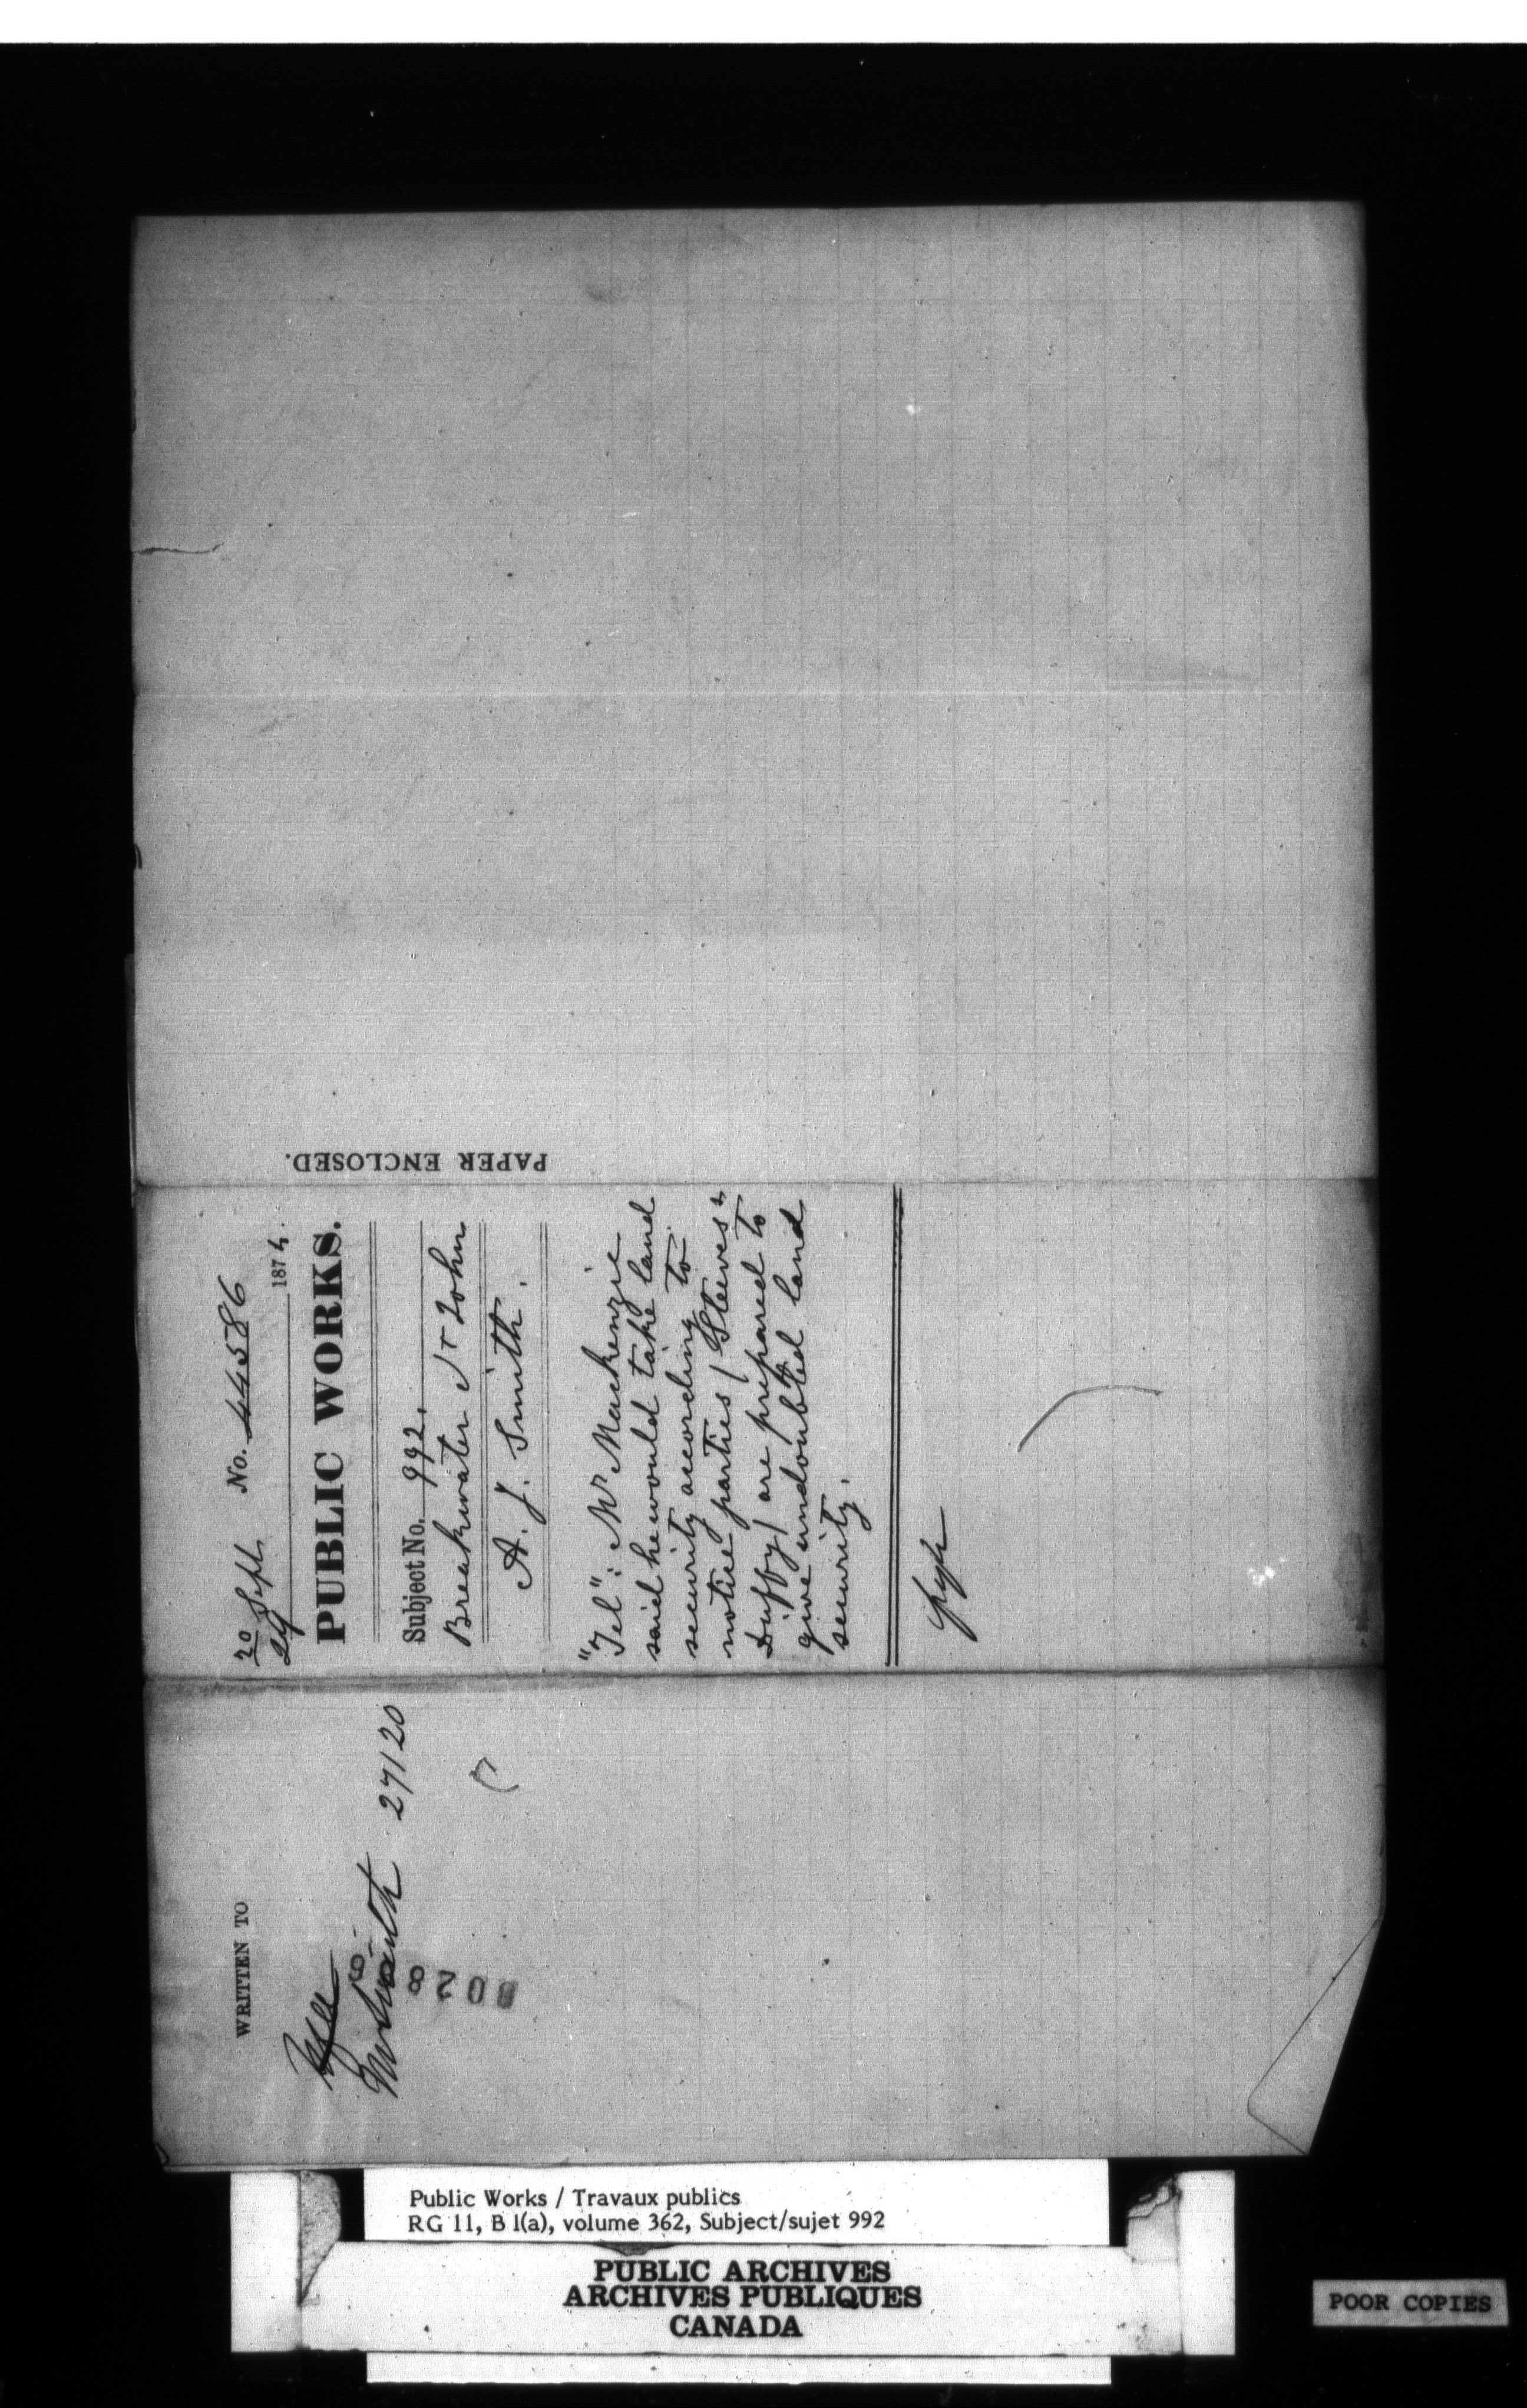 PAPER ENCLOSED.
30 Sept. No. 44586
29 187
PUBLIC WORKS.
Subject No. 992.
Breakwater St John
A. J. Smith.
"Tel": Mr Mackenzie
said he would take land
security according to
notice parties / Steeves &
Duffy / are prepared to
give undoubted land
security.
WRITTEN TO
27120
0028
Public Works / Travaux publics
RG 11, B 1(a), volume 362, Subject/sujet 992
PUBLIC ARCHIVES
ARCHIVES PUBLIQUES
CANADA
POOR COPIES